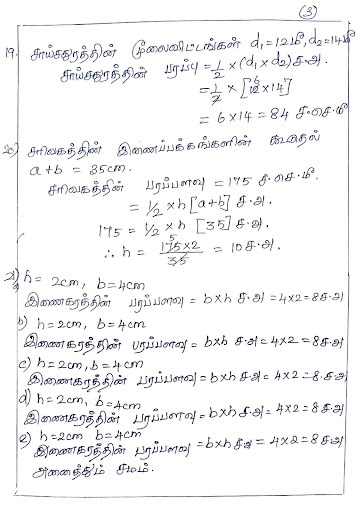 (3)
19. சாய்சதுரத்தின் மூலைவிட்டங்கள் d₁=12மீ, d₂=14மீ
சாய்சதுரத்தின் பரப்பு = 1/2 × (d₁ × d₂) ச.அ.
= 1/2 × [12 × 14] 6
= 6 × 14 = 84 ச.செ.மீ
20) சரிவகத்தின் இணைப்பக்கங்களின் கூடுதல்
a+b = 35cm.
சரிவகத்தின் பரப்பளவு = 175 ச.செ.மீ
= 1/2 × h [a+b] ச.அ.
175 = 1/2 × h [35] ச.அ.
∴ h = 175×2/35 = 10 ச.அ. 5
21) a) h = 2cm, b = 4cm
இணைகரத்தின் பரப்பளவு = b×h ச.அ = 4×2 = 8 ச.அ
b) h = 2cm, b = 4cm
இணைகரத்தின் பரப்பளவு = b×h ச.அ = 4×2 = 8 ச.அ
c) h = 2cm, b = 4cm
இணைகரத்தின் பரப்பளவு = b×h ச.அ = 4×2 = 8.ச.அ
d) h = 2cm, b = 4cm
இணைகரத்தின் பரப்பளவு = b×h ச.அ = 4×2 = 8 ச.அ
e) h = 2cm b = 4cm
இணைகரத்தின் பரப்பளவு = b×h ச.அ = 4×2 = 8 ச.அ
அனைத்தும் சமம்.